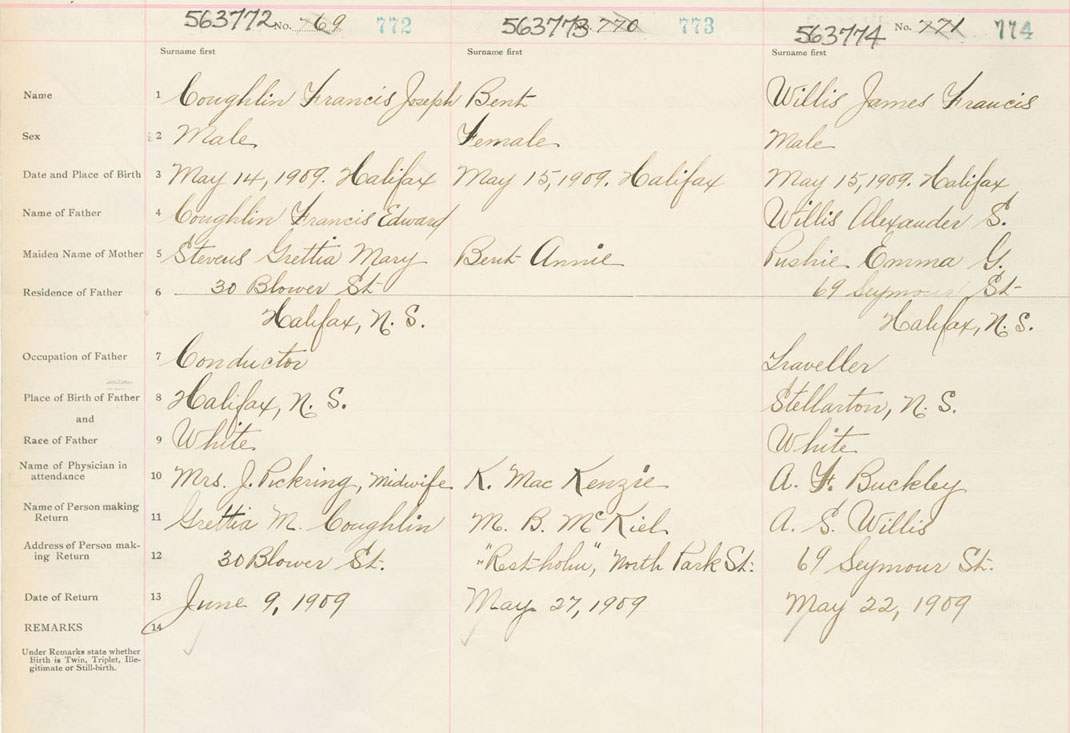 563772 No. 769 772 563773 No. 770 773 563774 No. 771 774
Surname first Surname first Surname first
Name 1 Coughlin Francis Joseph Bent Willis James Francis
Sex 2 Male Female Male
Date and Place of Birth 3 May 14, 1909. Halifax May 15, 1909. Halifax May 15, 1909. Halifax
Name of Father 4 Coughlin Francis Edward Willis Alexander S.
Maiden Name of Mother 5 Stevens Grettia Mary Bent Annie Pushie Emma G.
Residence of Father 6 30 Blower St 69 Seymour St
Halifax, N. S. Halifax, N. S.
Occupation of Father 7 Conductor Traveller
Place of Birth of Father 8 Halifax, N. S. Stellarton, N. S.
and
Race of Father 9 White White
Name of Physician in
attendance 10 Mrs. J. Pickring, midwife K. Mac Kenzie A. F. Buckley
Name of Person making
Return 11 Grettia M. Coughlin M. B. McKiel A. S. Willis
Address of Person mak-
ing Return 12 30 Blower St. "Rest-holm", North Park St. 69 Seymour St.
Date of Return 13 June 9, 1909 May 27, 1909 May 22, 1909
REMARKS 14
Under Remarks state whether
Birth is Twin, Triplet, Ille-
gitimate or Still-birth.